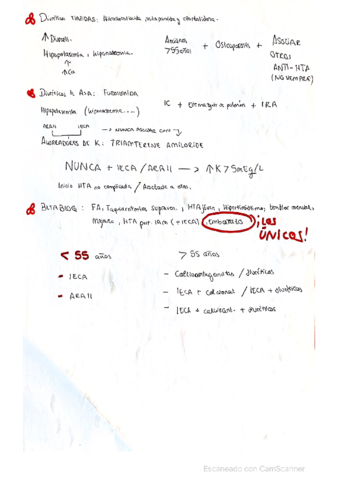 Diuréticos TIAZIDAS: Hidroclorotiazida, indapamida y clortalidona.
↑ Diuresis.
Hipopotasemia, hiponatremia.
↑
↑Ca
Ancianos
75 años + Osteoporosis + Asociar
OTROS
ANTI-HTA
(NO SIEMPRE)
Diuréticos de Asa: Furosemida
Hipopotasemia (hiponatremia...) IC + Edema agudo de pulmón + IRA
ARA II IECA → NUNCA con
Ahorradores de K: TRIAMTERENE AMILORIDE
NUNCA + IECA / ARA II → ↑K > 5mEq/L
Inicio HTA no complicada / Asociado a otros.
BETABLOQ: FA, Taquiarritmias Supraven., HTA, Hipertiroidismo, temblor esencial,
Migraña, HTA post IAM (+ IECA), Embarazo ¡Los
ÚNICOS!
< 55 años
- IECA
- ARA II
> 55 años
- Calcioantagonistas / Diuréticos
- IECA + calcioant / IECA + diuréticos
- IECA + calcioant. + diuréticos
Escaneado con CamScanner